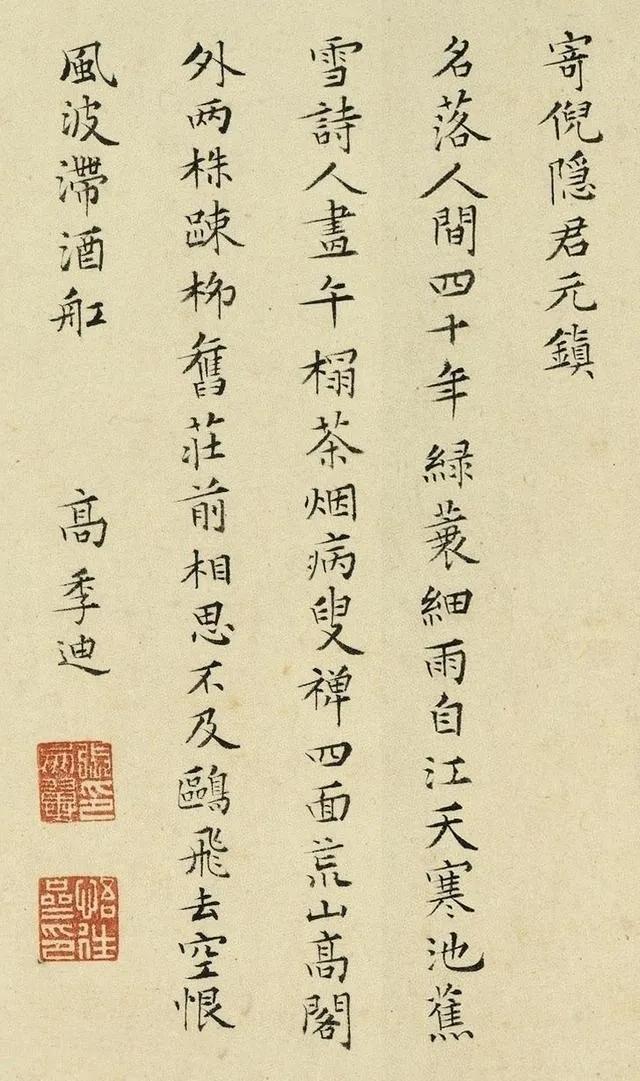 寄倪隠君元鎮
名落人間四十年綠蓑細雨自江天寒池蕉
雪詩人畫午榻茶烟病叟禅四面荒山髙閣
外两株踈栁舊莊前相思不及鷗飛去空恨
風波滯酒舩
髙季迪